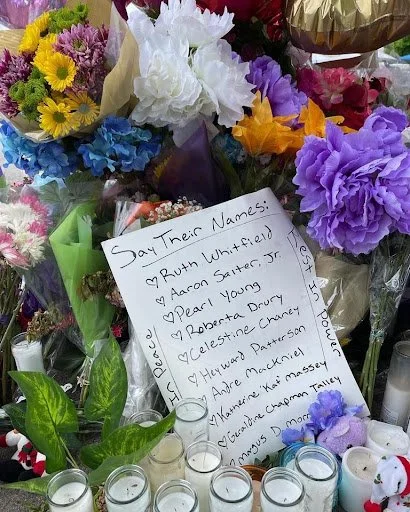 Say Their Names:
♡Ruth Whitfield
♡Aaron Salter, Jr.
♡Pearl Young
♡Roberta Drury
♡Celestine Chaney
♡Heyward Patterson
♡Andre Mackniel
♡Katherine 'Kat' Massey
♡Geraldine Chapman Talley
♡Margus D. Morr
In Peace
Rest In Power